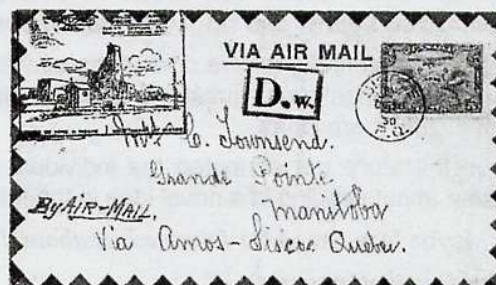 VIA AIR MAIL
D.w.
30
P.Q.
C. Townsend.
Grande Pointe.
Manitoba
By AIR-MAIL.
Via Amos-Siscoe Quebec.